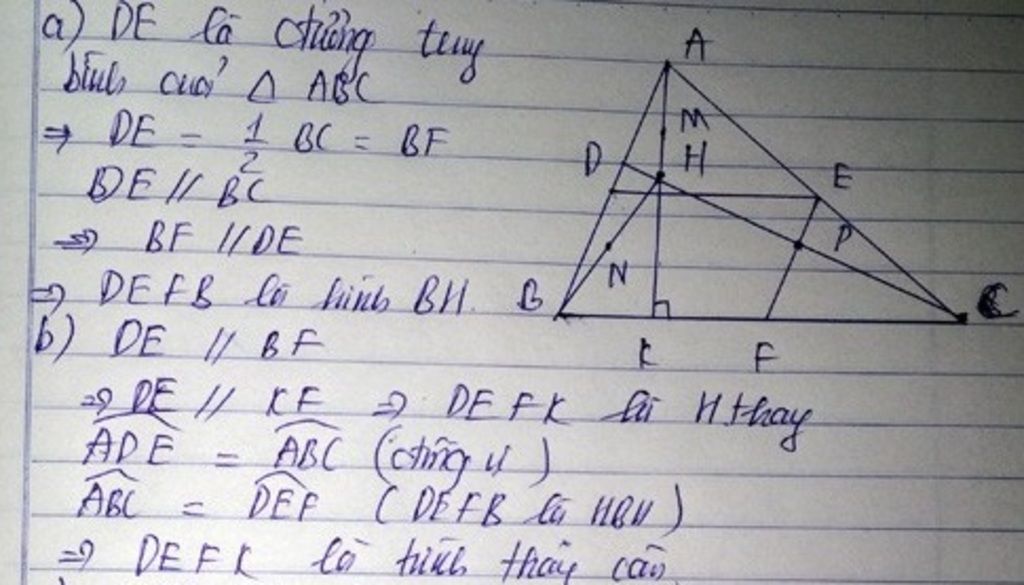 a) DE là đường trung
bình của Δ ABC
⇒ DE = 1/2 BC = BF
DE // BC
⇒ BF // DE
⇒ DEFB là hình BH.
b) DE // BF
⇒ DE // KF ⇒ DEFK là H.thang
ADE = ABC (đồng vị)
ABC = DEF (DEFB là HBH)
⇒ DEFK là hình thang cân
A
M
H
D
E
P
N
B
C
K
F